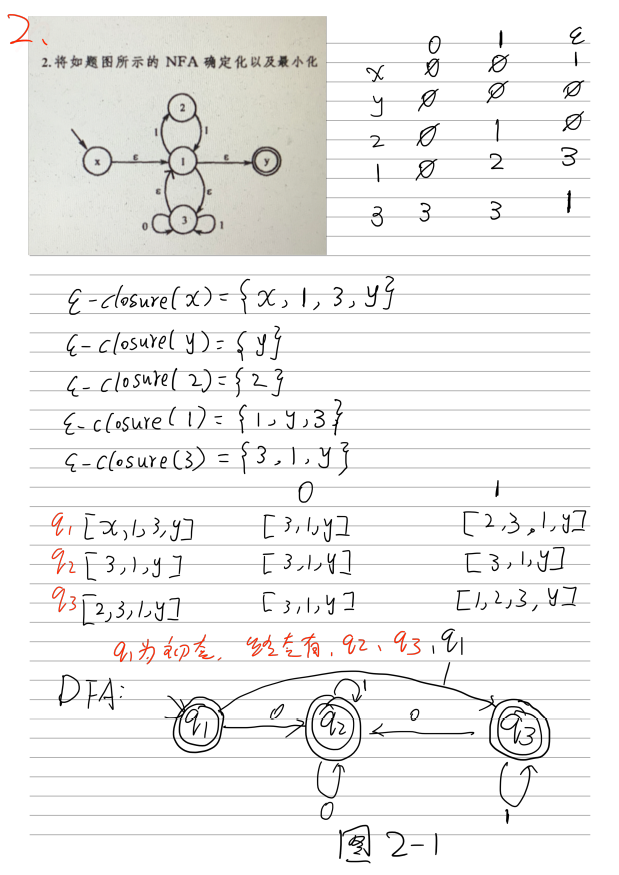 2、
2.将如题图所示的 NFA 确定化以及最小化
2
1 1
x ε 1 ε y
ε ε
0 3 1
0 1 ε
x ∅ ∅ 1
y ∅ ∅ ∅
2 ∅ 1 ∅
1 ∅ 2 3
3 3 3 1
ε-closure(x)={x,1,3,y}
ε-closure(y)={y}
ε-closure(2)={2}
ε-closure(1)={1,y,3}
ε-closure(3)={3,1,y}
0 1
q1 [x,1,3,y] [3,1,y] [2,3,1,y]
q2 [3,1,y] [3,1,y] [3,1,y]
q3 [2,3,1,y] [3,1,y] [1,2,3,y]
q1为初态, 终态有,q2、q3,q1
DFA:
1
1
q1 0 q2 0 q3
0 1
图 2-1